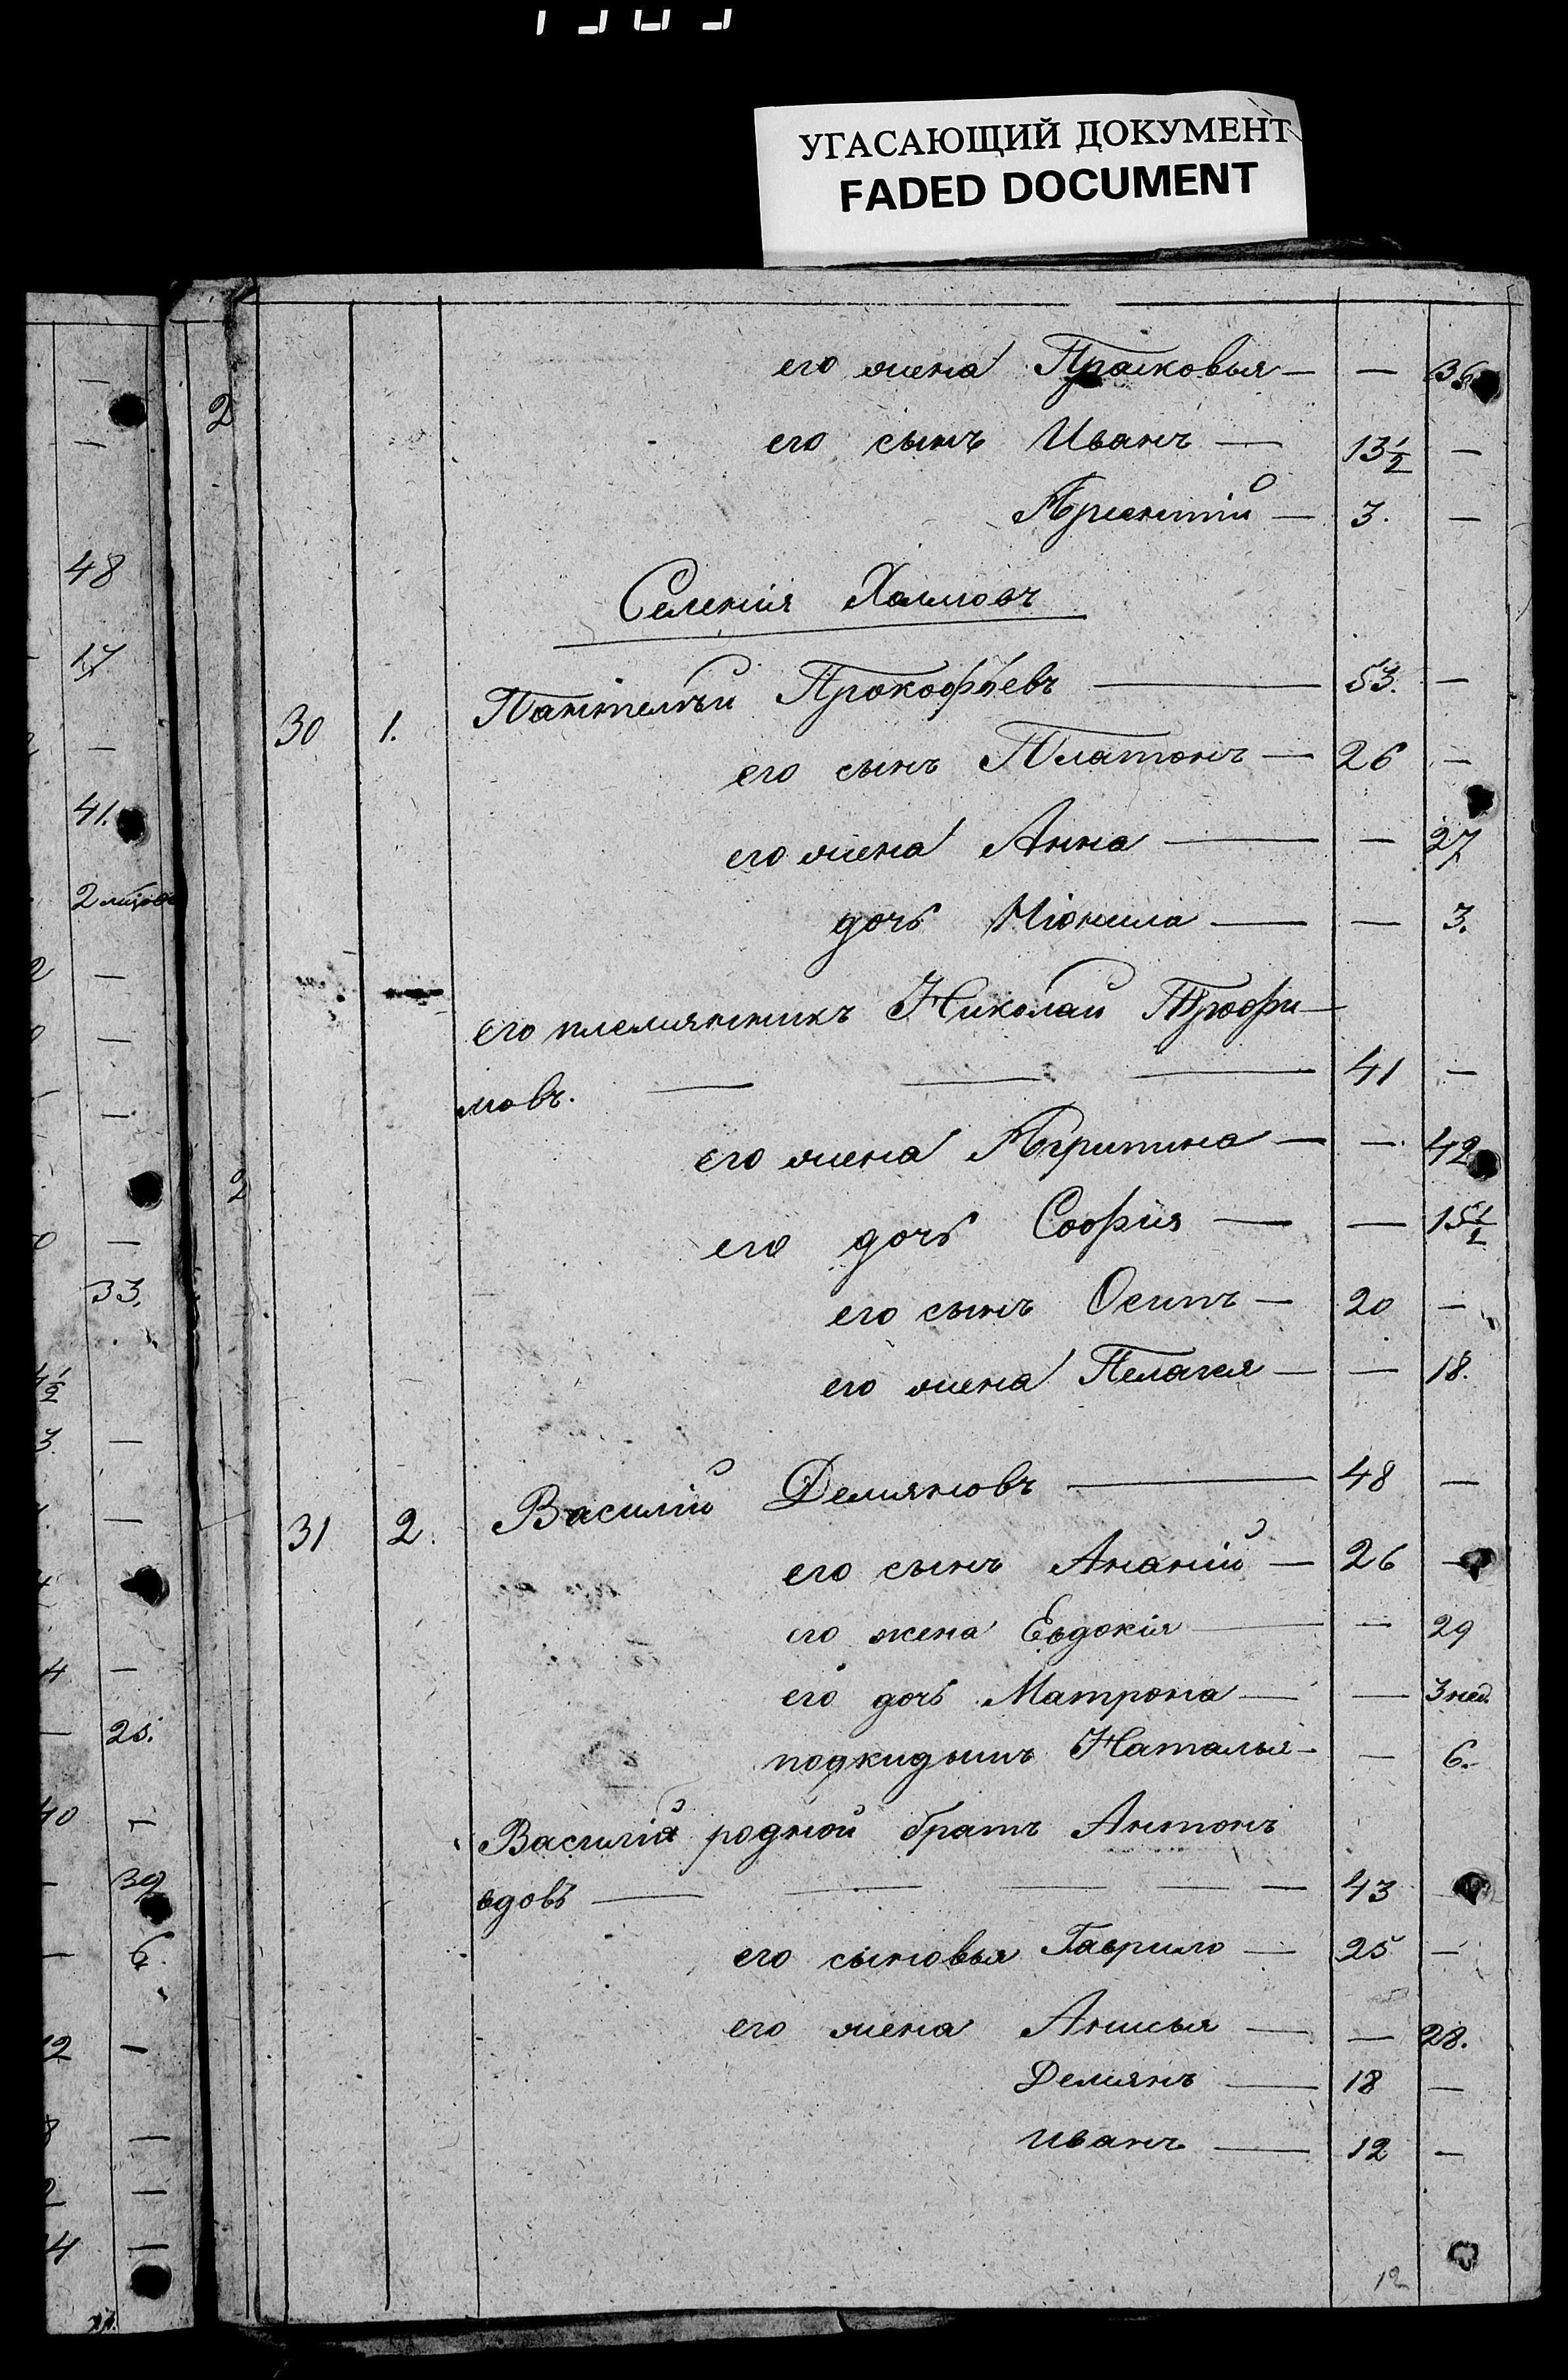 УГАСАЮЩИЙ ДОКУМЕНТ
FADED DOCUMENT
его жена Прасковья — — 36
его сынъ Иванъ — 13 1/2 —
Арсентій — 3. —
Селенія Халмовъ
30 1. Пантелѣй Прокофьевъ — 53. —
его сынъ Платонъ — 26 —
его жена Анна — — 27
дочь Нионила — — 3.
его племянникъ Николай Трофи-
мовъ. — — — 41 —
его жена Агрипина — — 42
его дочь Софія — — 15 1/2
его сынъ Осипъ — 20 —
его жена Пелагея — — 18.
31 2. Василій Демяновъ — 48 —
его сынъ Ананій — 26 —
его жена Евдокія — — 29
его дочь Матрона — — 3 нед.
подкидышъ Наталья — — 6.
Василія родной братъ Антонъ
вдовъ — — — — — 43
его сыновья Гаврило — 25 —
его жена Анисья — — 28.
Демянъ — 18 —
Иванъ — 12 —
12
2
2
48
17
41.
33.
25.
39
6.